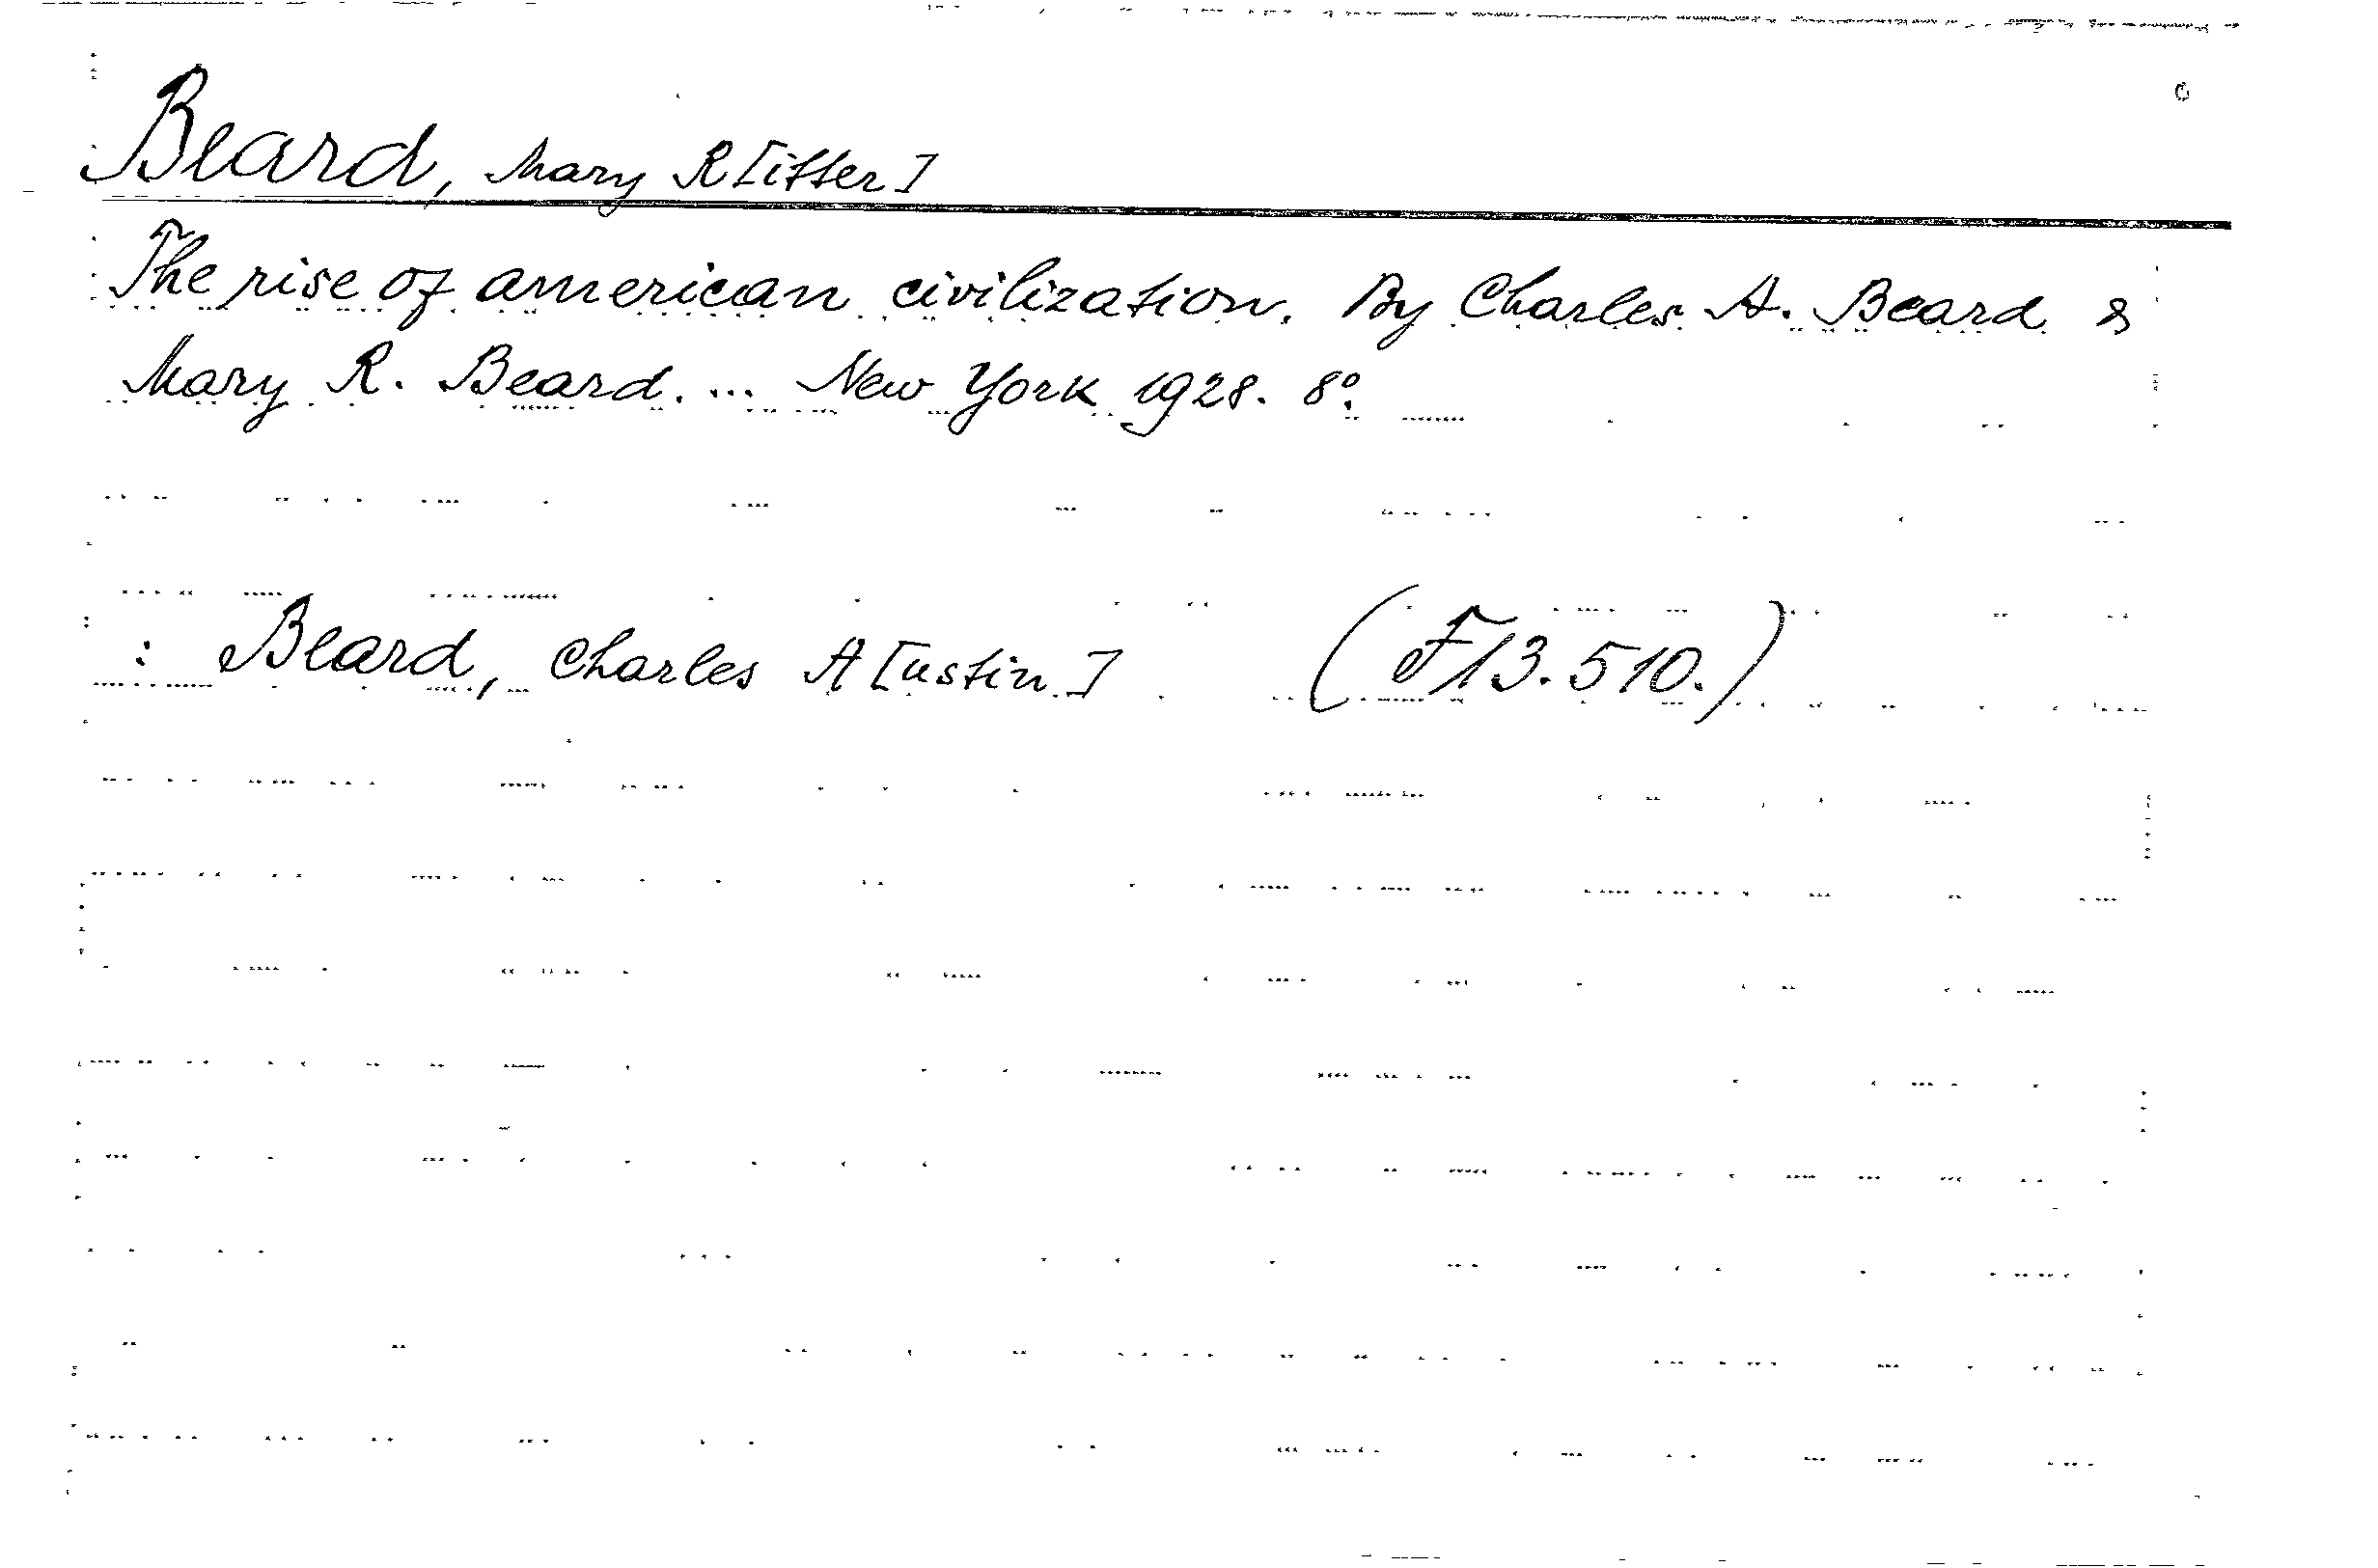 Beard, Mary R[itter]
The rise of american civilization. By Charles A. Beard &
Mary R. Beard. ... New York 1928. 8º.
: Beard, Charles A[ustin.] (F13.510.)